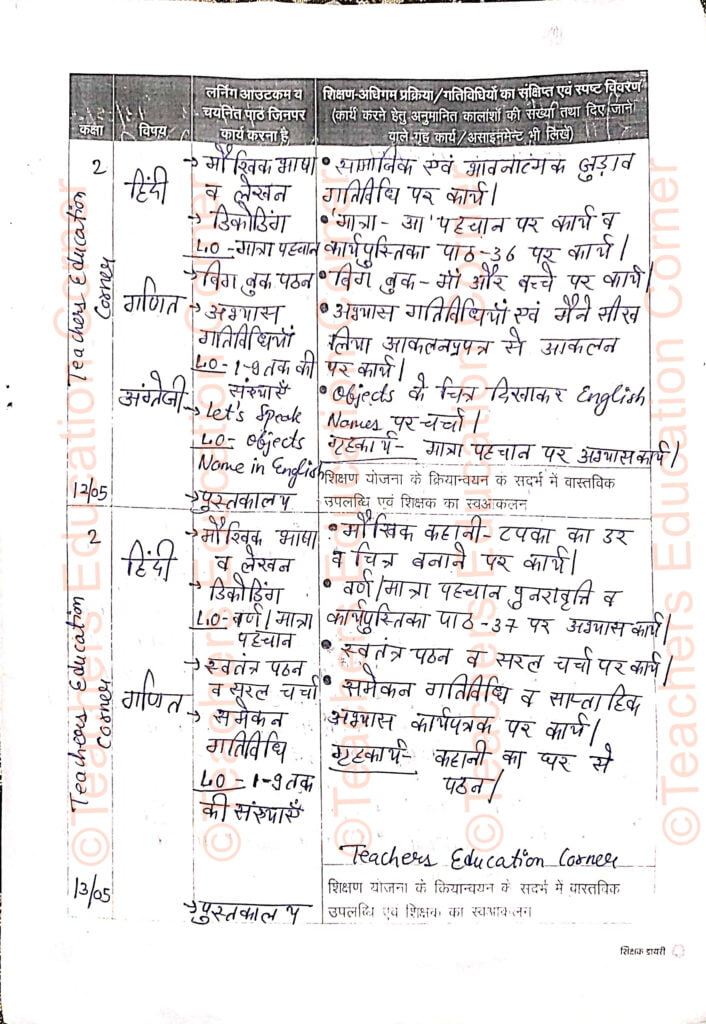 कक्षा
विषय
लर्निंग आउटकम व
चयनित पाठ जिनपर
कार्य करना है
शिक्षण-अधिगम प्रक्रिया/गतिविधियों का संक्षिप्त एवं स्पष्ट विवरण
(कार्य करने हेतु अनुमानित कालांशों की संख्या तथा दिए जाने
वाले गृह कार्य/असाइनमेन्ट भी लिखें)
2
Teachers Education
Corner
12/05
हिंदी
गणित
अंग्रेजी
→ मौखिक भाषा
व लेखन
→ डिकोडिंग
LO - मात्रा पहचान
→ बिग बुक पठन
→ अभ्यास
गतिविधियाँ
LO - 1-9 तक की
संख्याएँ
→ Let's Speak
LO - Objects
Name in English
→ पुस्तकालय
• सामाजिक एवं भावनात्मक जुड़ाव
गतिविधि पर कार्य।
• 'मात्रा - आ' पहचान पर कार्य व
कार्यपुस्तिका पाठ - 36 पर कार्य।
• बिग बुक - माँ और बच्चे पर कार्य।
• अभ्यास गतिविधियाँ एवं मैंने सीख
लिया आकलनप्रपत्र से आकलन
पर कार्य।
• Objects के चित्र दिखाकर English
Names पर चर्चा।
गृहकार्य - मात्रा पहचान पर अभ्यास कार्य।
शिक्षण योजना के क्रियान्वयन के सदर्भ में वास्तविक
उपलब्धि एवं शिक्षक का स्वआकलन
2
Teachers Education
Corner
13/05
हिंदी
गणित
→ मौखिक भाषा
व लेखन
→ डिकोडिंग
LO - वर्ण/मात्रा
पहचान
→ स्वतंत्र पठन
व सरल चर्चा
→ समेकन
गतिविधि
LO - 1-9 तक
की संख्याएँ
→ पुस्तकालय
• मौखिक कहानी - टपका का डर
व चित्र बनाने पर कार्य।
• वर्ण/मात्रा पहचान पुनरावृत्ति व
कार्यपुस्तिका पाठ - 37 पर अभ्यास कार्य।
• स्वतंत्र पठन व सरल चर्चा पर कार्य।
• समेकन गतिविधि व साप्ताहिक
अभ्यास कार्यपत्रक पर कार्य।
गृहकार्य - कहानी का घर से
पठन।
Teachers Education Corner
शिक्षण योजना के क्रियान्वयन के सदर्भ में वास्तविक
उपलब्धि एव शिक्षक का स्वआकलन
शिक्षक डायरी
©Teachers Education Corner
©Teachers Education Corner
©Teachers Education Corner
©Teachers Education Corner